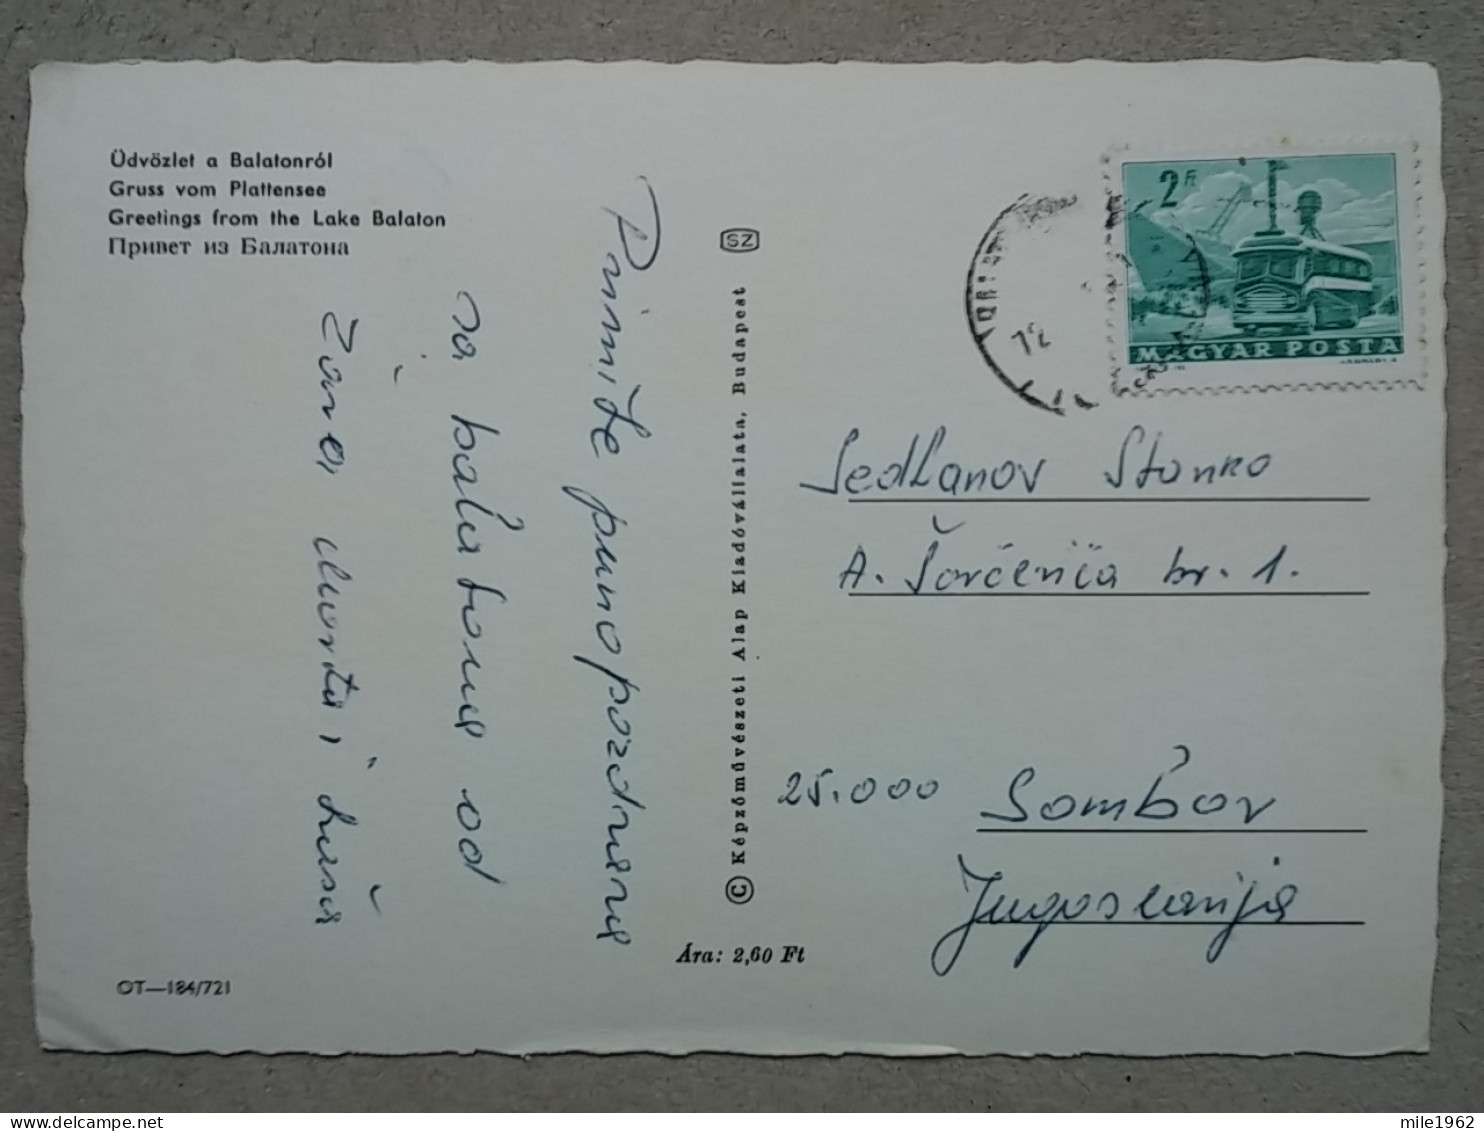 Üdvözlet a Balatonról
Gruss vom Plattensee
Greetings from the Lake Balaton
Привет из Балатона
Primite puno pozdrava
sa balatona od
i
OT—184/721
SZ
© Képzőművészeti Alap Kiadóvállalata, Budapest
Ára: 2,60 Ft
2 Ft
MAGYAR POSTA
72
Sedlanov Stanko
A. Šorčenča br. 1.
25.000 Sombor
Jugoslavija
mile1962